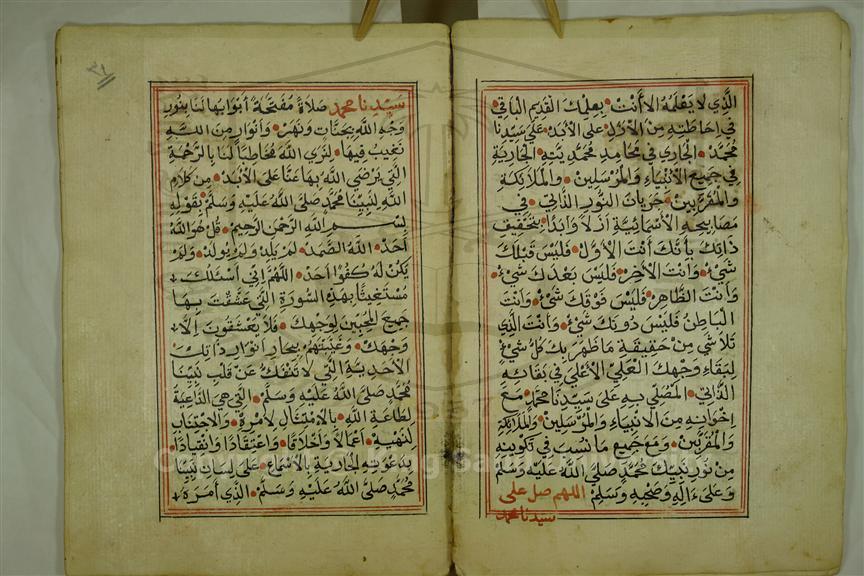 الَّذِي لَا يَعْلَمُهُ إِلَّا أَنْتَ بِعِلْمِكَ الْقَدِيمِ الْبَاقِي
فِي إِحَاطَتِهِ مِنَ الْأَزَلِ عَلَى الْأَبَدِ عَلَى سَيِّدِنَا
مُحَمَّدٍ الْجَارِي فِي مَحَامِدِ مُحَمَّدِيَّتِهِ الْجَارِيَةِ
فِي جَمِيعِ الْأَنْبِيَاءِ وَالْمُرْسَلِينَ وَالْمَلَائِكَةِ
وَالْمُقَرَّبِينَ النُّورِ الذَّاتِيِّ فِي
مَصَابِيحِهِ الْأَسْمَائِيَّةِ أَزَلًا وَأَبَدًا بِتَحْقِيقِ
ذَاتِكَ بِأَنَّكَ أَنْتَ الْأَوَّلُ فَلَيْسَ قَبْلَكَ
شَيْءٌ وَأَنْتَ الْآخِرُ فَلَيْسَ بَعْدَكَ شَيْءٌ
وَأَنْتَ الظَّاهِرُ فَلَيْسَ فَوْقَكَ شَيْءٌ وَأَنْتَ
الْبَاطِنُ فَلَيْسَ دُونَكَ شَيْءٌ وَأَنْتَ الَّذِي
تَلَاشَى مِنْ حَقِيقَةِ مَا ظَهَرَ بِكَ كُلُّ شَيْءٍ
لِبَقَاءِ وَجْهِكَ الْعَلِيِّ الْأَعْلَى فِي بَقَائِهِ
الذَّاتِيِّ الْمُصَلَّى بِهِ عَلَى سَيِّدِنَا مُحَمَّدٍ مَعَ
إِخْوَانِهِ مِنَ الْأَنْبِيَاءِ وَالْمُرْسَلِينَ وَالْمَلَائِكَةِ
وَالْمُقَرَّبِينَ وَمَعَ جَمِيعِ مَا نُسِبَ فِي تَكْوِينِهِ
مِنْ نُورِ نَبِيِّكَ مُحَمَّدٍ صَلَّى اللَّهُ عَلَيْهِ وَسَلَّمَ
وَعَلَى ءَالِهِ وَصَحْبِهِ وَسَلِّمْ اللهم صل على
سيدنا محمد
٣٩
سَيِّدِنَا مُحَمَّدٍ صَلَاةً مُفَتَّحَةً أَبْوَابُهَا لَنَا بِنُورِ
وَجْهِ اللَّهِ بِجَنَّاتٍ وَنَهَرٍ وَأَنْوَارٍ مِنَ اللَّهِ
نَغِيبُ فِيهَا لِنَرَى اللَّهَ مُخَاطِبًا لَنَا بِالرَّحْمَةِ
الَّتِي يَرْضَى اللَّهُ بِهَا عَنَّا عَلَى الْأَبَدِ مِنْ كَلَامِ
اللَّهِ لِنَبِيِّنَا مُحَمَّدٍ صَلَّى اللَّهُ عَلَيْهِ وَسَلَّمَ بِقَوْلِهِ
بِسْمِ اللَّهِ الرَّحْمَنِ الرَّحِيمِ قُلْ هُوَ اللَّهُ
أَحَدٌ اللَّهُ الصَّمَدُ لَمْ يَلِدْ وَلَمْ يُولَدْ وَلَمْ
يَكُنْ لَهُ كُفُوًا أَحَدٌ اللَّهُمَّ إِنِّي أَسْئَلُكَ
مُسْتَغِيثًا بِهَذِهِ السُّورَةِ الَّتِي عَشَّقْتَ بِهَا
جَمِيعَ الْمُحِبِّينَ لِوَجْهِكَ فَلَا يَعْشَقُونَ إِلَّا
وَجْهَكَ وَغَيَّبْتَهُمْ بِبِحَارِ أَنْوَارِ ذَاتِكَ
الْأَحَدِيَّةِ الَّتِي لَا تَنْفَكُّ عَنْ قَلْبِ نَبِيِّنَا
مُحَمَّدٍ صَلَّى اللَّهُ عَلَيْهِ وَسَلَّمَ الَّتِي هِيَ الدَّاعِيَةُ
لِطَاعَةِ اللَّهِ بِالِامْتِثَالِ لِأَمْرِهِ وَالِاجْتِنَابِ
لِنَهْيِهِ أَعْمَالًا وَأَخْلَاقًا وَاعْتِقَادًا وَانْقِيَادًا
بِدَعْوَتِهِ الْجَارِيَةِ بِالْأَسْمَاعِ عَلَى لِسَانِ نَبِيِّنَا
مُحَمَّدٍ صَلَّى اللَّهُ عَلَيْهِ وَسَلَّمَ الَّذِي أَمَرَهُ